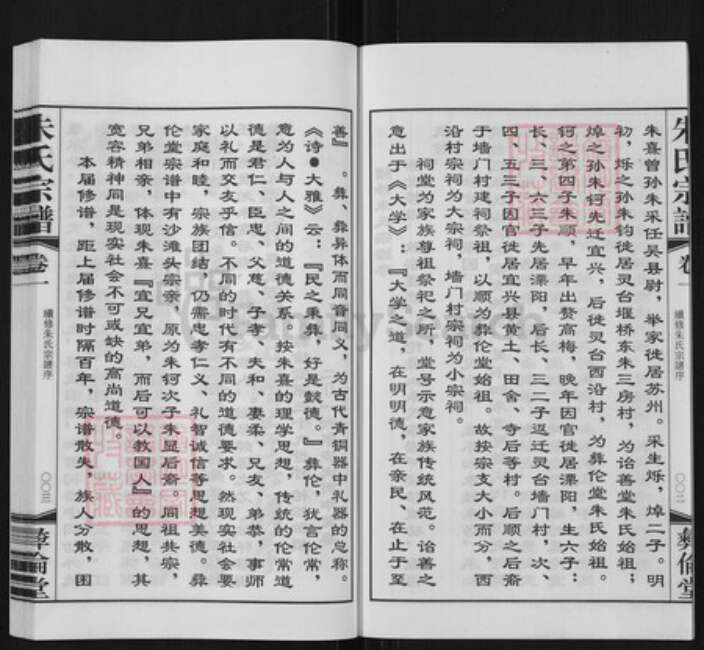 朱熹曾孙朱采任吴县尉，举家徙居苏州。采生烁，焯二子。明
初，烁之孙朱钧徙居灵台堰桥东朱三房村，为诒善堂朱氏始祖；
焯之孙朱钶先迁宜兴，后徙灵台西沿村，为彝伦堂朱氏始祖。
钶之第四子朱顺，早年出赘高梅，晚年因官徙居溧阳，生六子；
长、三、六三子先居溧阳，后长、三二子返迁灵台墙门村，次、
四、五三子因官徙居宜兴县黄土、田舍、寺后等村。后顺之后裔
于墙门村建祠祭祖，以顺为彝伦堂始祖。故按宗支大小而分，西
沿村宗祠为大宗祠，墙门村宗祠为小宗祠。
祠堂为家族尊祖祭祀之所，堂号示意家族传统风范。诒善之
意出于《大学》：『大学之道，在明明德，在亲民、在止于至
善』。彝、彝异体而同音同义，为古代青铜器中礼器的总称。
《诗•大雅》云：『民之秉彝，好是懿德。』彝伦，犹言伦常，
意为人与人之间的道德关系。按朱熹的理学思想，传统的伦常道
德是君仁、臣忠、父慈、子孝、夫和、妻柔、兄友、弟恭，事师
以礼而交友乎信。不同的时代有不同的道德要求。然现实社会要
家庭和睦，宗族团结，仍需忠孝仁义、礼智诚信等思想美德。彝
伦堂宗谱中有沙滩头宗亲，原为朱钶次子朱显后裔。同祖共宗，
兄弟相亲，体现朱熹『宜兄宜弟，而后可以教国人』的思想，其
宽容精神同是现实社会不可或缺的高尚道德。
本届修谱，距上届修谱时隔百年，宗谱散失，族人分散，困
朱氏宗譜
卷一
續修朱氏宗譜序
〇〇二
彝倫堂
朱氏宗譜
卷一
續修朱氏宗譜序
〇〇三
彝倫堂